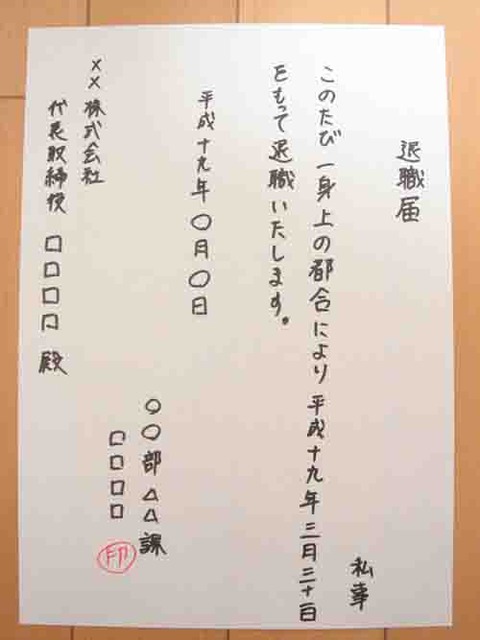 退職届
私事
このたび一身上の都合により平成十九年三月三十一日
をもって退職いたします。
平成十九年〇月〇日
〇〇部△△課
□□□□
印
××株式会社
代表取締役□□□□殿